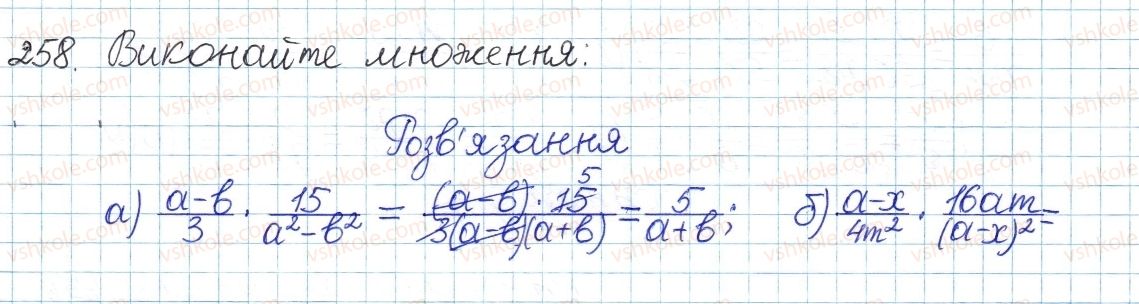 258. Виконайте множення:
Розв'язання
а) (а-в)/3 · 15/(а²-в²) = ((а-в) · 15 5)/(3(а-в)(а+в)) = 5/(а+в); б) (а-х)/4m² · 16am/(а-х)² =
vshkole.com